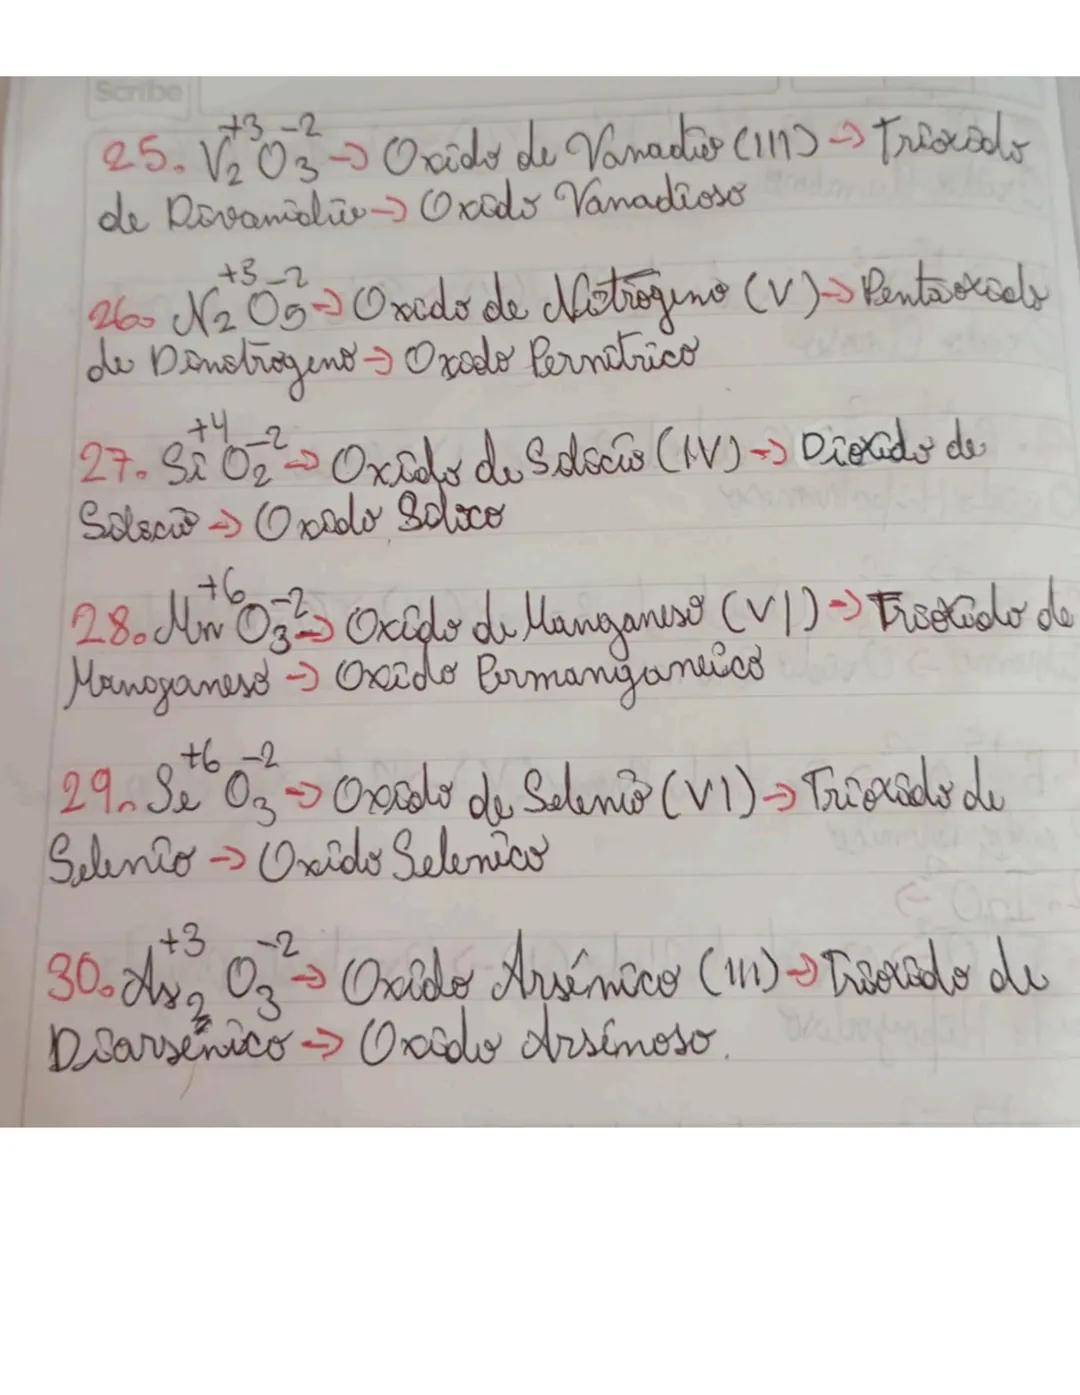 Scribe
+3 -2
25. V2 O3 → Oxido de Vanadio (III) → Trioxido
de Divanidio → Oxido Vanadioso
+5 -2
26. N2 O5 → Oxido de Nitrógeno (V) → Pentaoxido
de Dinitrogeno → Oxido Pernitrico
+4 -2
27. Si O2 → Oxido de Silicio (IV) → Dioxido de
Silicio → Oxido Silico
+6 -2
28. Mn O3 → Oxido de Manganeso (VI) → Trioxido de
Manganeso → Oxido Permanganeico
+6 -2
29. Se O3 → Oxido de Selenio (VI) → Trioxido de
Selenio → Oxido Selenico
+3 -2
30. As2 O3 → Oxido Arsénico (III) → Trioxido de
Diarsénico → Oxido Arsenioso.